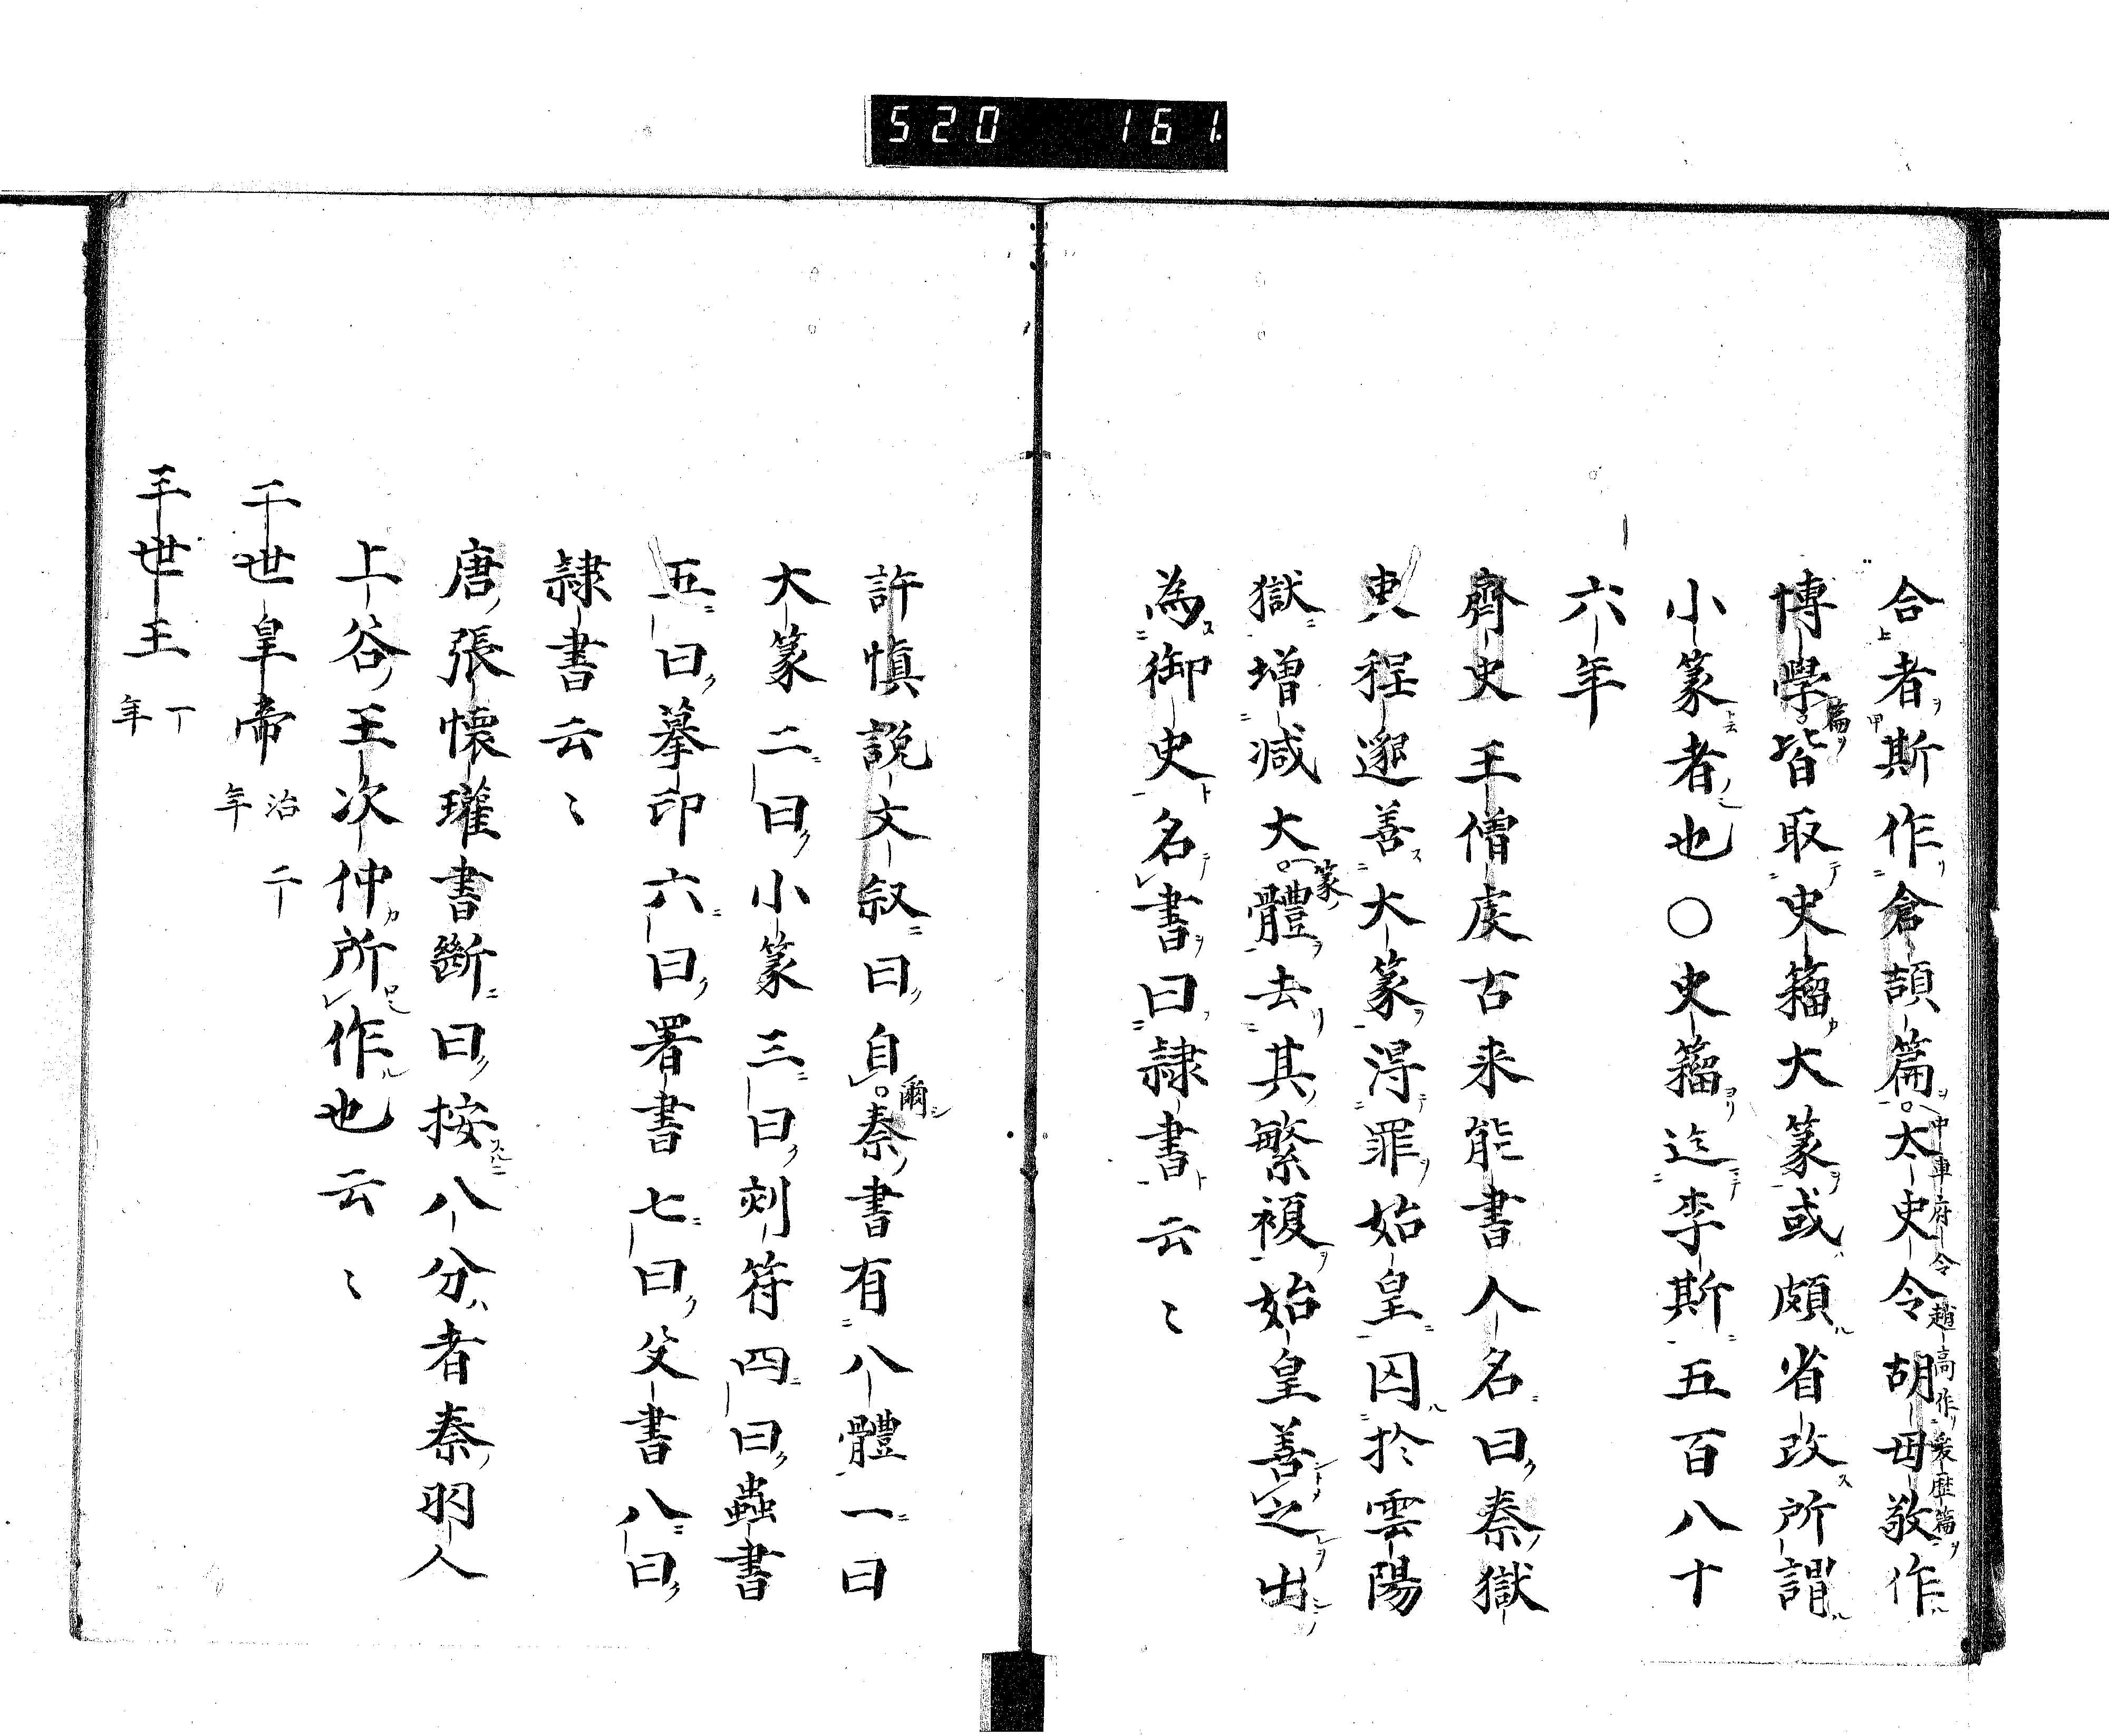 520 161
合者斯作倉頡篇太史令胡毋敬作
中車府令趙高作爰歴篇
博學皆取史籀大篆或頗省改所謂
篇
小篆者也○史籀迄李斯五百八十
六年
齊史王僧虔古来能書人名曰秦獄
吏程邈善大篆得罪始皇囚於雲陽
獄増減大體去其繁複始皇善之出
篆
為御史名書曰隷書云〻
許慎說文叙曰自秦書有八體一曰
爾
大篆二曰小篆三曰刻符四曰蟲書
五曰摹印六曰署書七曰殳書八曰
隷書云〻
唐張懐瓘書斷曰按八分者秦羽人
上谷王次仲所作也云〻
二世皇帝 治三年
三世王